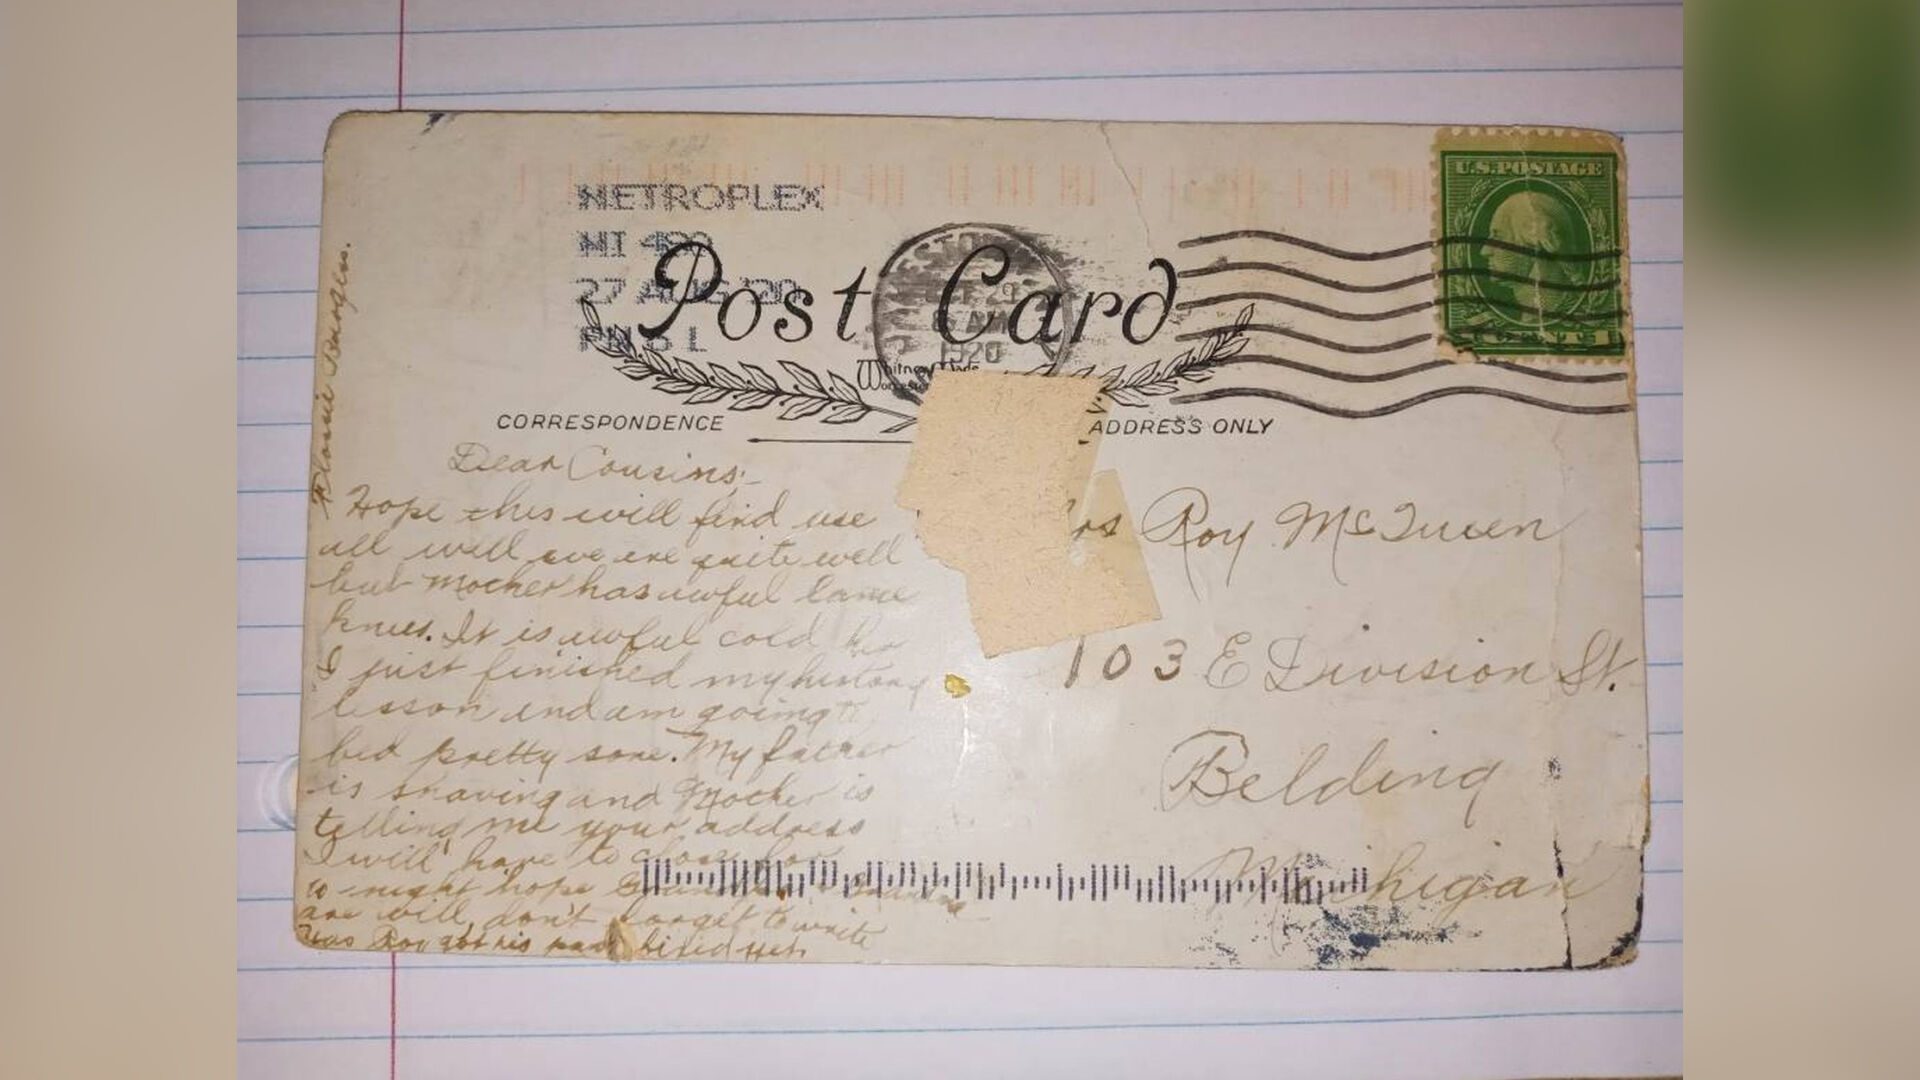 METROPLEX
MI 480
27 AUG '20
PM 3 L
Post Card
OCT 29
8 AM
1920
Whitney Made
Worcester
CORRESPONDENCE
ADDRESS ONLY
U.S. POSTAGE
CENT 1
Dear Cousins:-
Hope this will find use
all well we are quite well
but Mother has awful lame
knees. It is awful cold her
I just finished my history
lesson and am going to
bed pretty sone. My father
is shaving and Mother is
telling me your address
I will have to close for
to night hope
are well, don't forget to write
Has Roy got his hired yet
Flossie Burgess.
Mrs Roy McQueen
103 E Division St.
Belding
Michigan